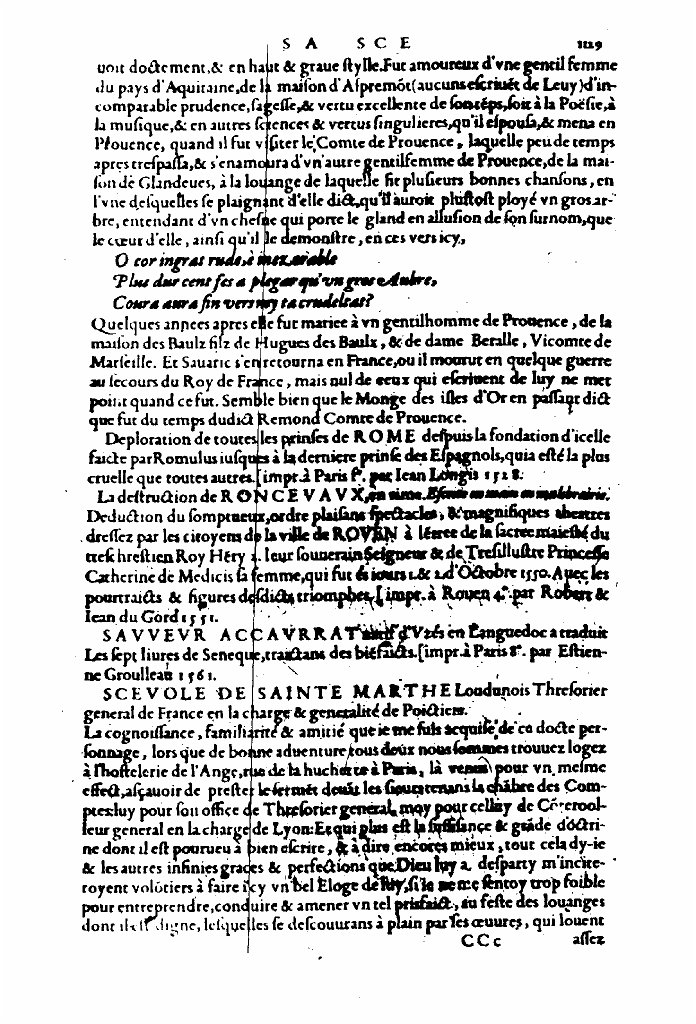 S A    S C E    1129
uoit doctement,& en haut & graue stylle.Fut amoureux d'vne gentil femme
du pays d'Aquitaine,de la maison d'Aspremõt(aucuns escriuẽt de Leuy)d'in-
comparable prudence,sagesse,& vertu excellente de soncẽps,soit à la Poësie,à
la musique,& en autres sciences & vertus singulieres,qu'il espousa,& mena en
Prouence, quand il fut visiter le Comte de Prouence, laquelle peu de temps
apres trespassa,& s'enamoura d'vn autre gentilfemme de Prouence,de la mai-
son de Glandeues, à la louange de laquelle fit plusieurs bonnes chansons, en
l'vne desquelles se plaignant d'elle dict,qu'il auroit plustost ployé vn gros ar-
bre, entendant d'vn chesne qui porte le gland en allusion de son surnom,que
le cœur d'elle, ainsi qu'il le demonstre, en ces vers icy,
O cor ingrat rude,è inexarable
Plus dur cent fes a plegar qu'vn gros Aubre,
Coura aura fin vers my ta crudeltat?
Quelques annees apres elle fut mariee à vn gentilhomme de Prouence, de la
maison des Baulz filz de Hugues des Baulx, & de dame Beralle, Vicomte de
Marseille. Et Sauaric s'en retourna en France,ou il mourut en quelque guerre
au secours du Roy de France, mais nul de ceux qui escriuent de luy ne met
point quand ce fut. Semble bien que le Monge des isles d'Or en passant dict
que fut du temps dudict Remond Comte de Prouence.
Deploration de toutes les prinses de ROME despuis la fondation d'icelle
faicte par Romulus iusques à la derniere prinse des Espagnols,qui a esté la plus
cruelle que toutes autres. [impr.à Paris 8°. par Iean Longis 1528.
La destruction de RONCEVAUX,en rime. Escrite en main en
Deduction du somptueux,ordre plaisans spectacles, & magnifiques theatres
dressez par les citoyens de la ville de ROVEN à lẽtree de la sacree maiesté du
treschrestien Roy Hẽry 2. leur souuerain Seigneur & de Tresillustre Princesse
Catherine de Medicis sa femme,qui fut és iours 1.& 2.d'Octobre 1550. Auec les
pourtraicts & figures desdicts triomphes.[ impr. à Rouen 4°. par Robert &
Iean du Gord 1551.
SAVVEVR ACCAVRRAT natif d'Vzés en Languedoc a traduit
Les sept liures de Seneque,traictans des biẽfaicts.[impr.à Paris 8°. par Estien-
ne Groulleau 1561.
SCEVOLE DE SAINTE MARTHE Loudunois Thresorier
general de France en la charge & generalité de Poictiers.
La cognoissance, familiarité & amitié que ie me suis acquise de ce docte per-
sonnage, lors que de bonne aduenture,tous deux nous sommes trouuez logez
à l'hostelerie de l'Ange,rue de la huchette à Paris, là venus pour vn mesme
effect,asçauoir de prester le sermẽt deuãt les sieurs tenans la chãbre des Com-
ptes:luy pour son office de Thresorier general, moy pour celluy de Cõterool-
leur general en la charge de Lyon: Et qui plus est la suffisance & grãde doctri-
ne dont il est pourueu à bien escrire, & à dire encores mieux, tout cela dy-ie
& les autres infinies graces & perfections que Dieu luy a desparty m'incite-
royent volõtiers à faire icy vn bel Eloge de luy, si ie ne me sentoy trop foible
pour entreprendre,conduire & amener vn tel prisfaict, au feste des louanges
dont il est digne, lesquelles se descouurans à plain par ses œuures, qui louent
CCc    assez